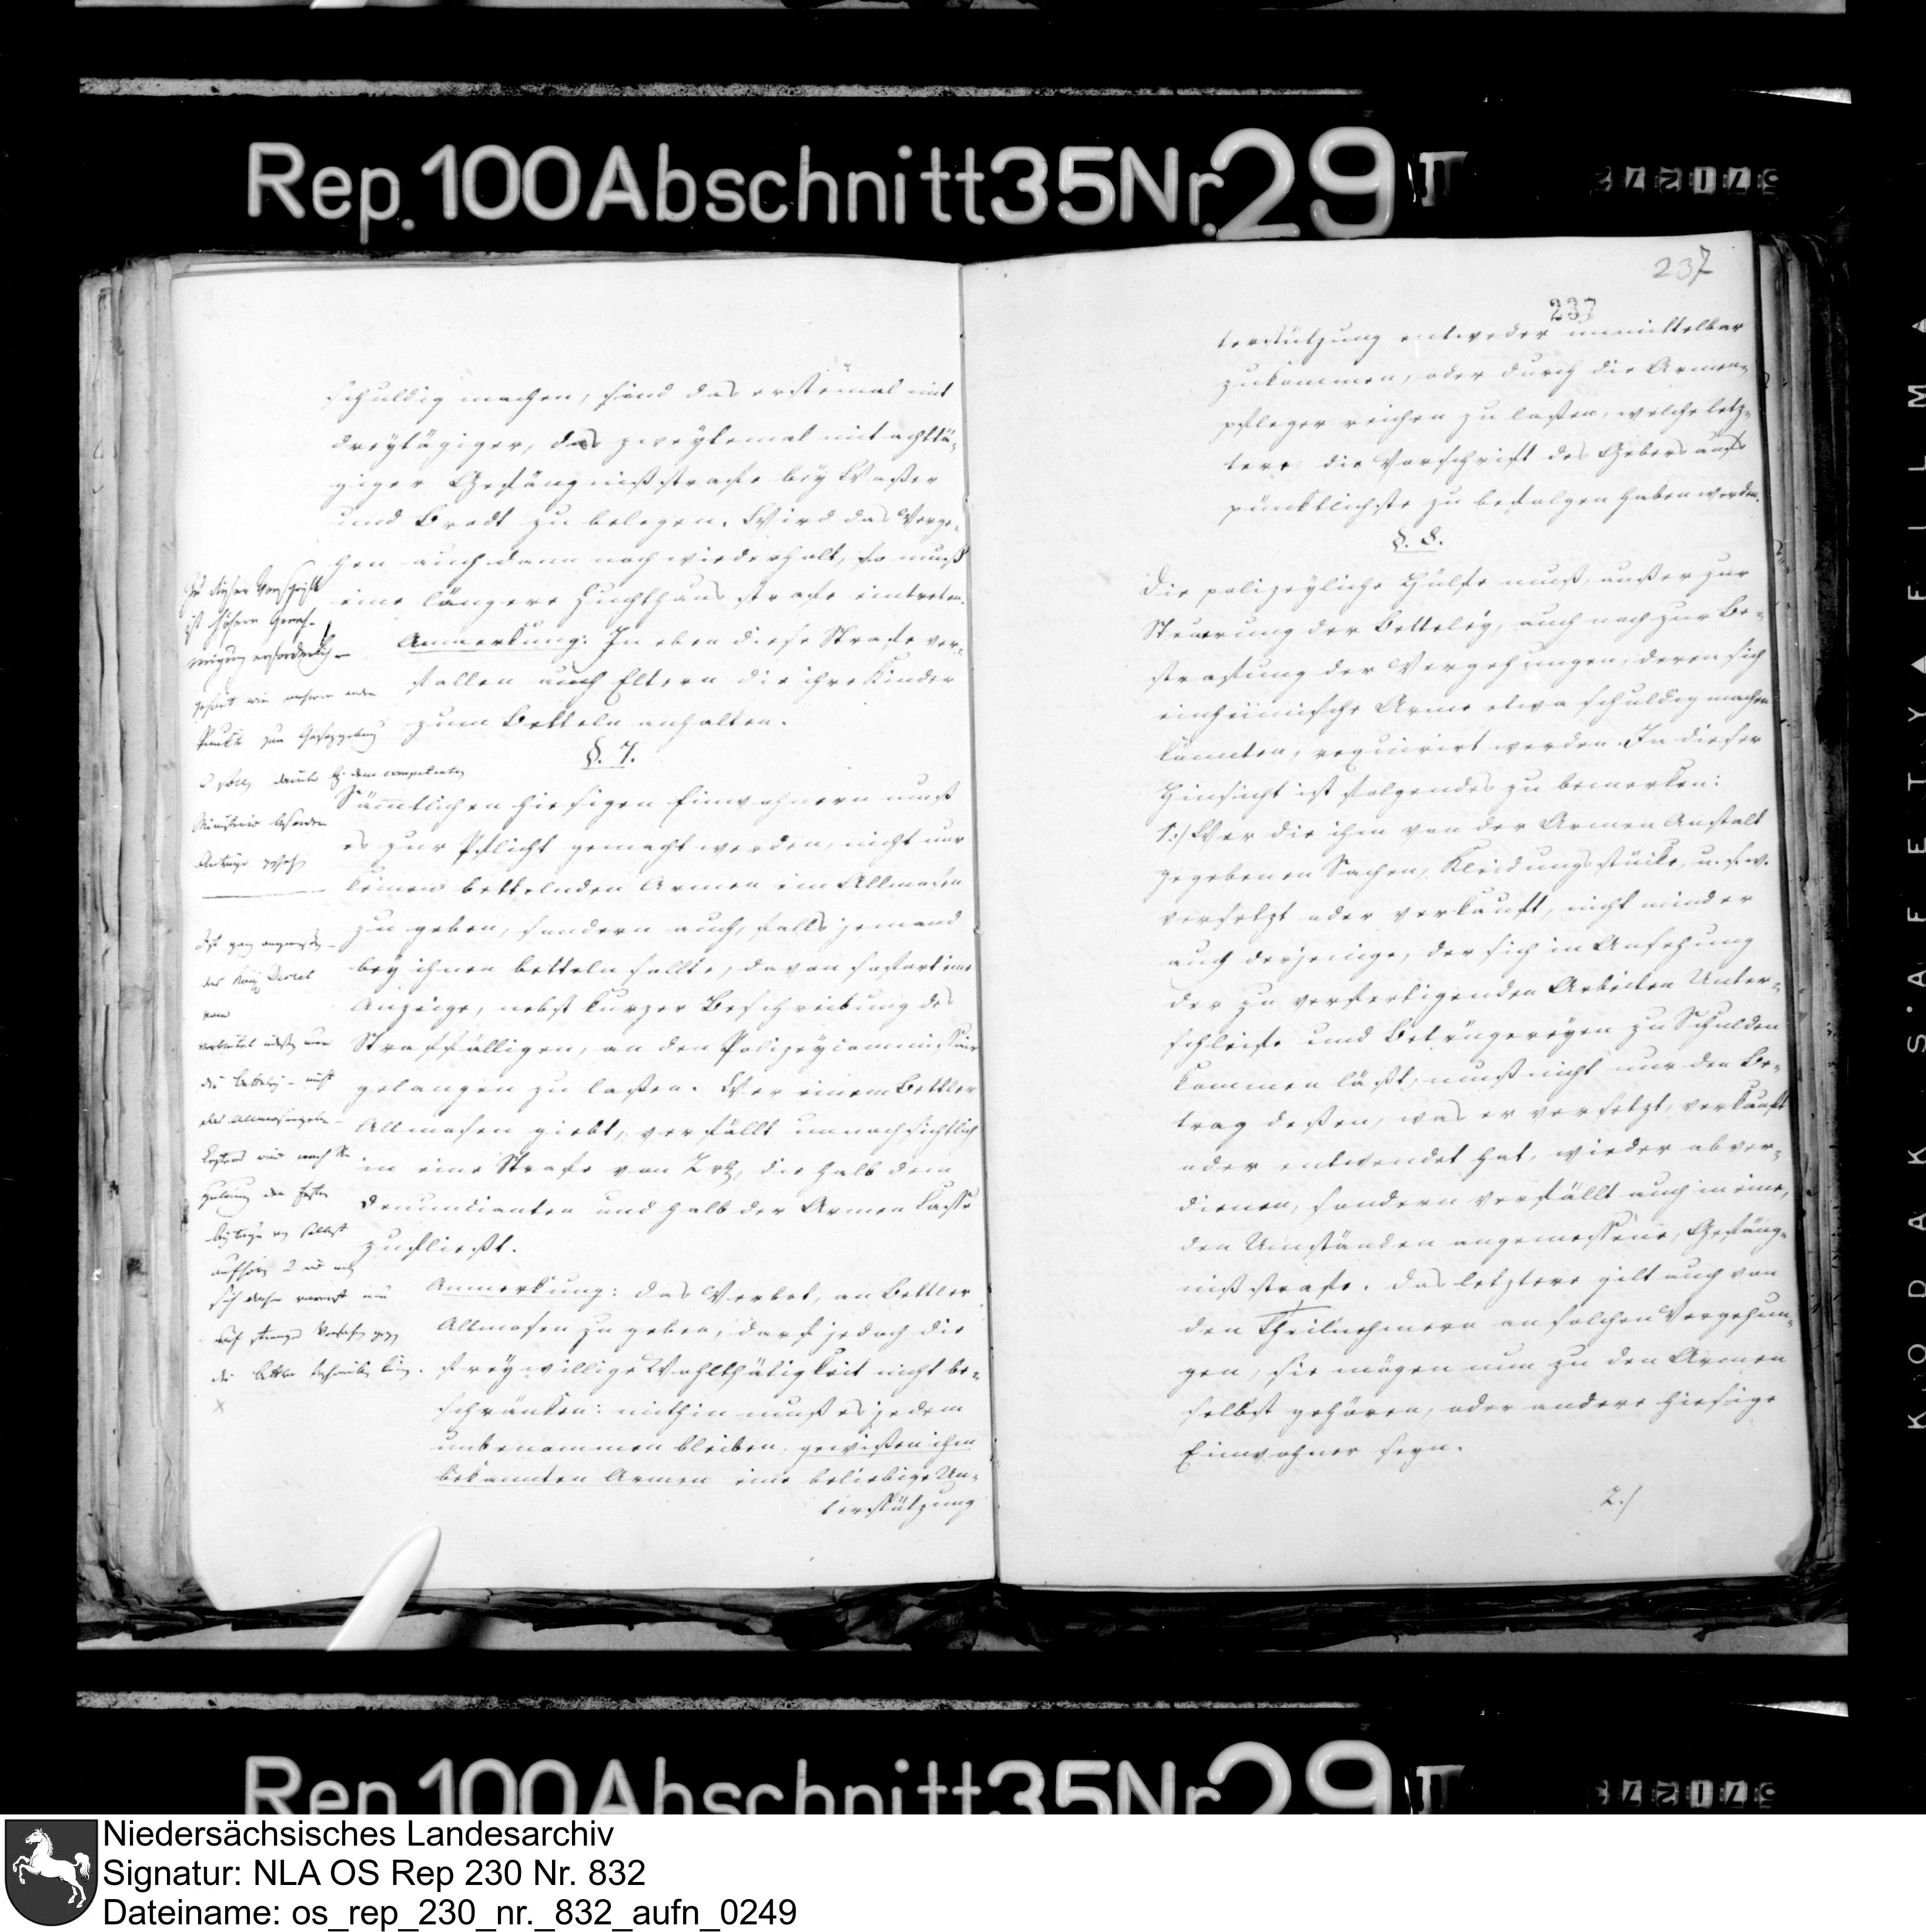 Rep. 100 Abschnitt 35 Nr. 29 II
schuldig machen, sind das erstemal mit
dreytägiger, das zweytemal mit achttä-
giger Gefängnißstrafe bey Waßer
und Brodt zu belegen. Wird das Verge-
hen auch dann noch wiederholt, so muß
eine längere Zuchthausstrafe eintreten.
Anmerkung: In eben diese Strafe ver-
fallen auch Eltern die ihre Kinder
zum Betteln anhalten.
§. 7.
Sämtlichen hiesigen Einwohnern muß
es zur Pflicht gemacht werden, nicht nur
keinem bettelnden Armen ein Allmosen
zu geben, sondern auch, falls jemand
bey ihnen betteln sollte, davon sofort eine
Anzeige, nebst kurzer Beschreibung des
Straffälligen, an den Polizeycommissair
gelangen zu laßen. Wer einem Bettler
Allmosen giebt, verfällt unnachsichtlich
in eine Strafe von 2 rtl, die halb dem
Denuncianten und halb der Armen Casse
zufließt.
Anmerkung: das Verbot, an Bettler
Allmosen zu geben, darf jedoch die
freywillige Wohlthätigkeit nicht be-
schränken: mithin muß es jedem
unbenommen bleiben, gewißen ihm
bekannten Armen eine beliebige Un-
terstützung
Zu dieser Vorschrift
ist höhere Geneh-
migung erforderlich
gehört wie mehrere andere
Punkte zur Gesetzgebung
u dem competenten
Ministerio besondere
Anträge
Ist ganz
das Decret
vom
verbietet nur
die Betteley - nicht
das Allmosengeben
wird nach
selbst
u
sich daher
auf strenges Verfahren gegen
die Bettler
237
237
terstützung entweder unmittelbar
zukommen, oder durch die Armen-
pfleger reichen zu laßen, welche letz-
tere die Vorschrift des Gebers aufs
pünktlichste zu befolgen haben werden.
§. 8.
Die polizeyliche Hülfe muß, außer zur
Steuerung der Betteley, auch noch zur Be-
strafung der Vergehungen, deren sich
einheimische Arme etwa schuldig machen
könnten, requirirt werden. In dieser
Hinsicht ist folgendes zu bemerken:
1:/ Wer die ihm von der Armen Anstalt
gegebenen Sachen, Kleidungsstücke, u. s. w.
versetzt oder verkauft, nicht minder
auch derjenige, der sich in Ansehung
der zu verfertigenden Arbeiten Unter-
schleife und Betrügereyen zu Schulden
kommen läßt, muß nicht nur den Be-
trag deßen, was er versetzt, verkauft
oder entwendet hat, wieder abver-
dienen, sondern verfällt auch in eine,
den Umständen angemessene, Gefäng-
nißstrafe. Das letztere gilt auch von
den Theilnehmern an solchen Vergehun-
gen, sie mögen nun zu den Armen
selbst gehören, oder andere hiesige
Einwohner seyn.
2./
KODAK SAFETY FILM
Rep. 100 Abschnitt 35 Nr. 29 II
Niedersächsisches Landesarchiv
Signatur: NLA OS Rep 230 Nr. 832
Dateiname: os_rep_230_nr._832_aufn_0249